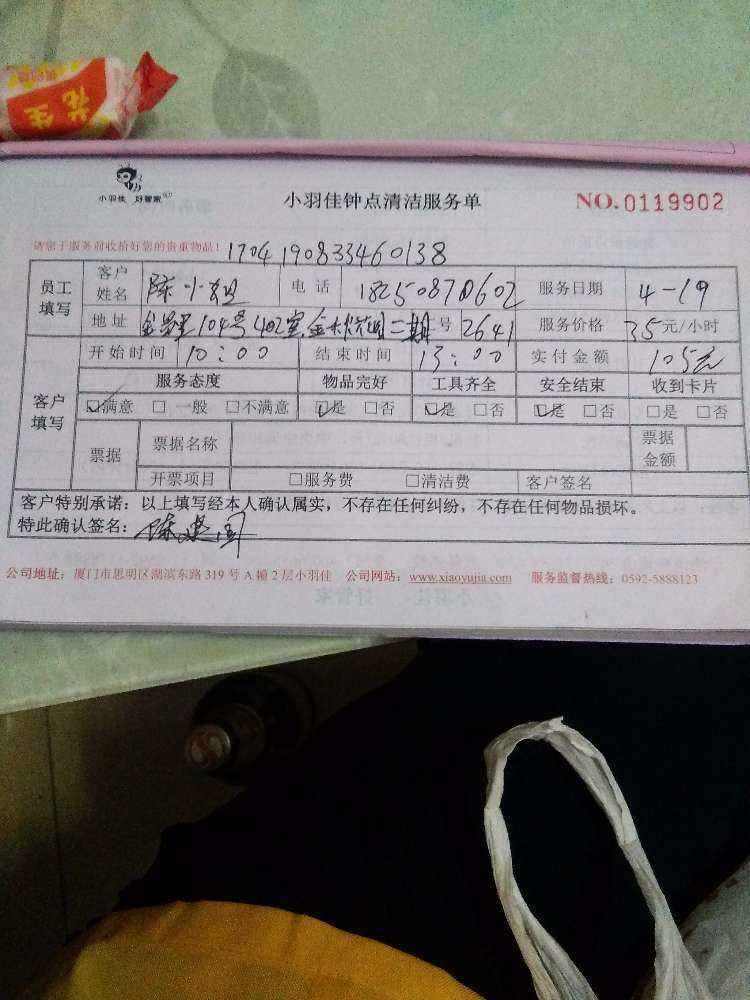 花生
小羽佳 好管家
小羽佳钟点清洁服务单
NO.0119902
请您于服务前收拾好您的贵重物品！ 1704190833460138
员工填写 客户姓名 陈小姐 电话 18250870602 服务日期 4-19
地址 104号402室 二期 号 2641 服务价格 35元/小时
客户填写 开始时间 10:00 结束时间 13:00 实付金额 105元
服务态度 物品完好 工具齐全 安全结束 收到卡片
☑满意 □一般 □不满意 ☑是 □否 ☑是 □否 ☑是 □否 □是 □否
票据 票据名称 票据金额
开票项目 □服务费 □清洁费 客户签名
客户特别承诺：以上填写经本人确认属实，不存在任何纠纷，不存在任何物品损坏。
特此确认签名：陈
公司地址：厦门市思明区湖滨东路 319 号 A 幢 2 层小羽佳 公司网站：www.xiaoyujia.com 服务监督热线：0592-5888123